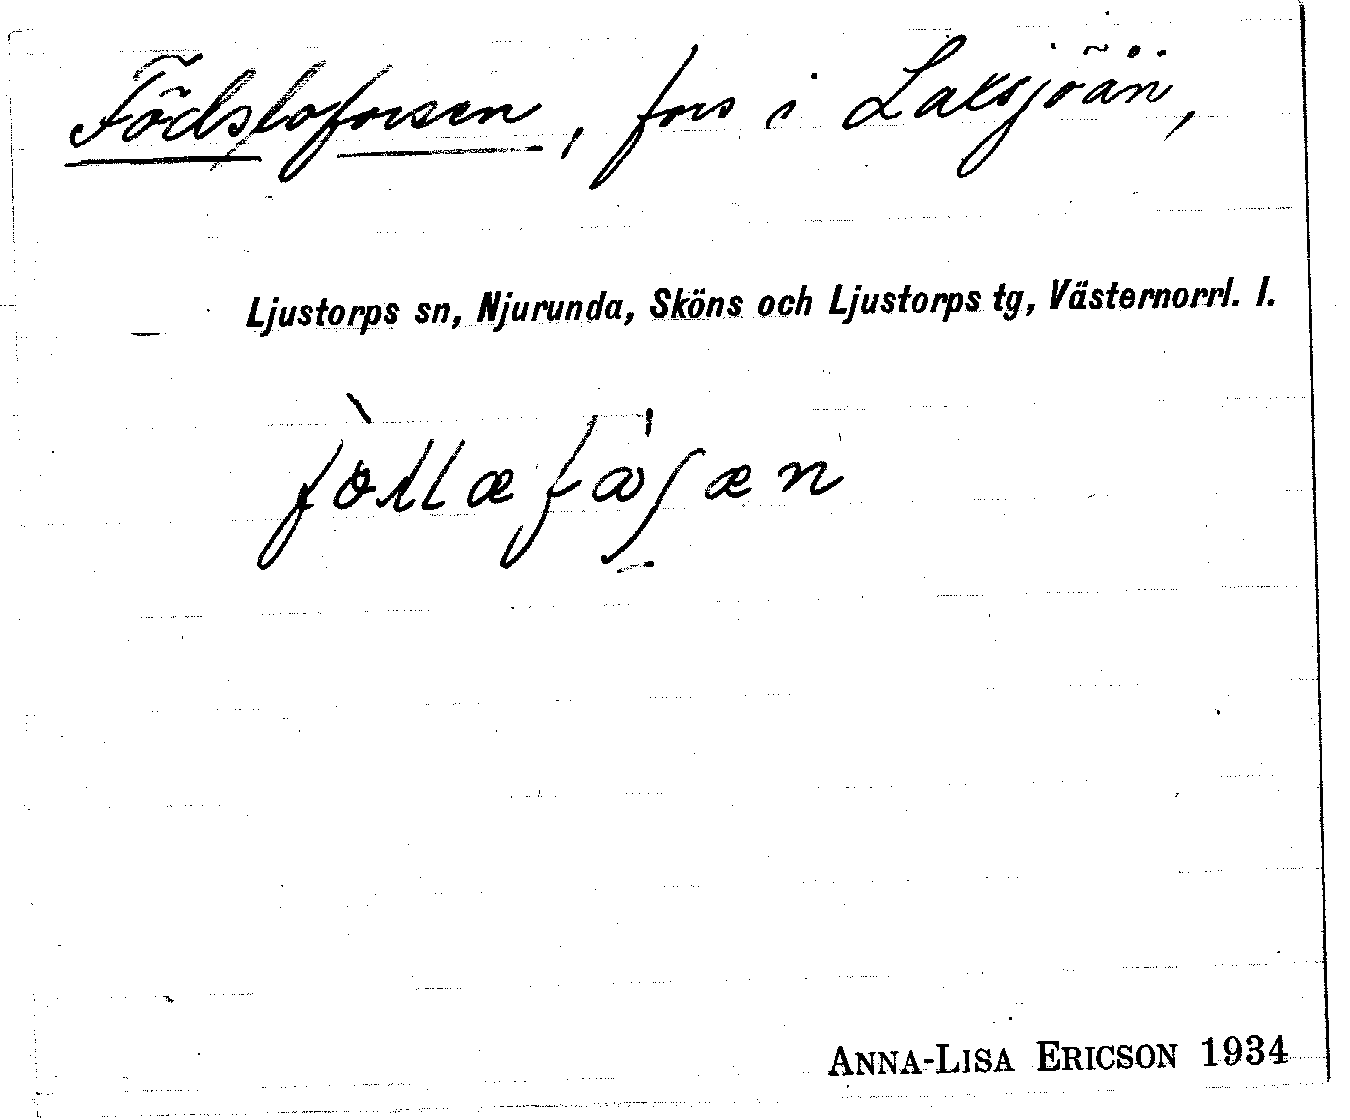 Födsloforsen, fors i Laksjöån,
Ljustorps sn, Njurunda, Sköns och Ljustorps tg, Västernorrl. l.
ANNA-LISA ERICSON 1934